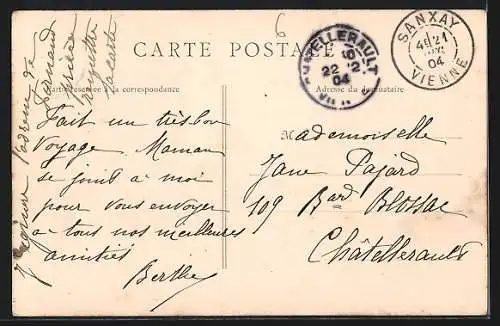 6
CARTE POSTALE
CHATELLERAULT
22 12
04
SANXAY
4E 21
04
VIENNE
Partie réservée à la correspondance
Adresse du destinataire
J'ignore l'adresse de
Fernand
prière
remettre
sa carte
Fait un très bon
Voyage Maman
se joint à moi
pour vous envoyer
à tous nos meilleures
amitiés
Berthe
Mademoiselle
Jane Pajard
109 Bard Blossac
Châtellerault